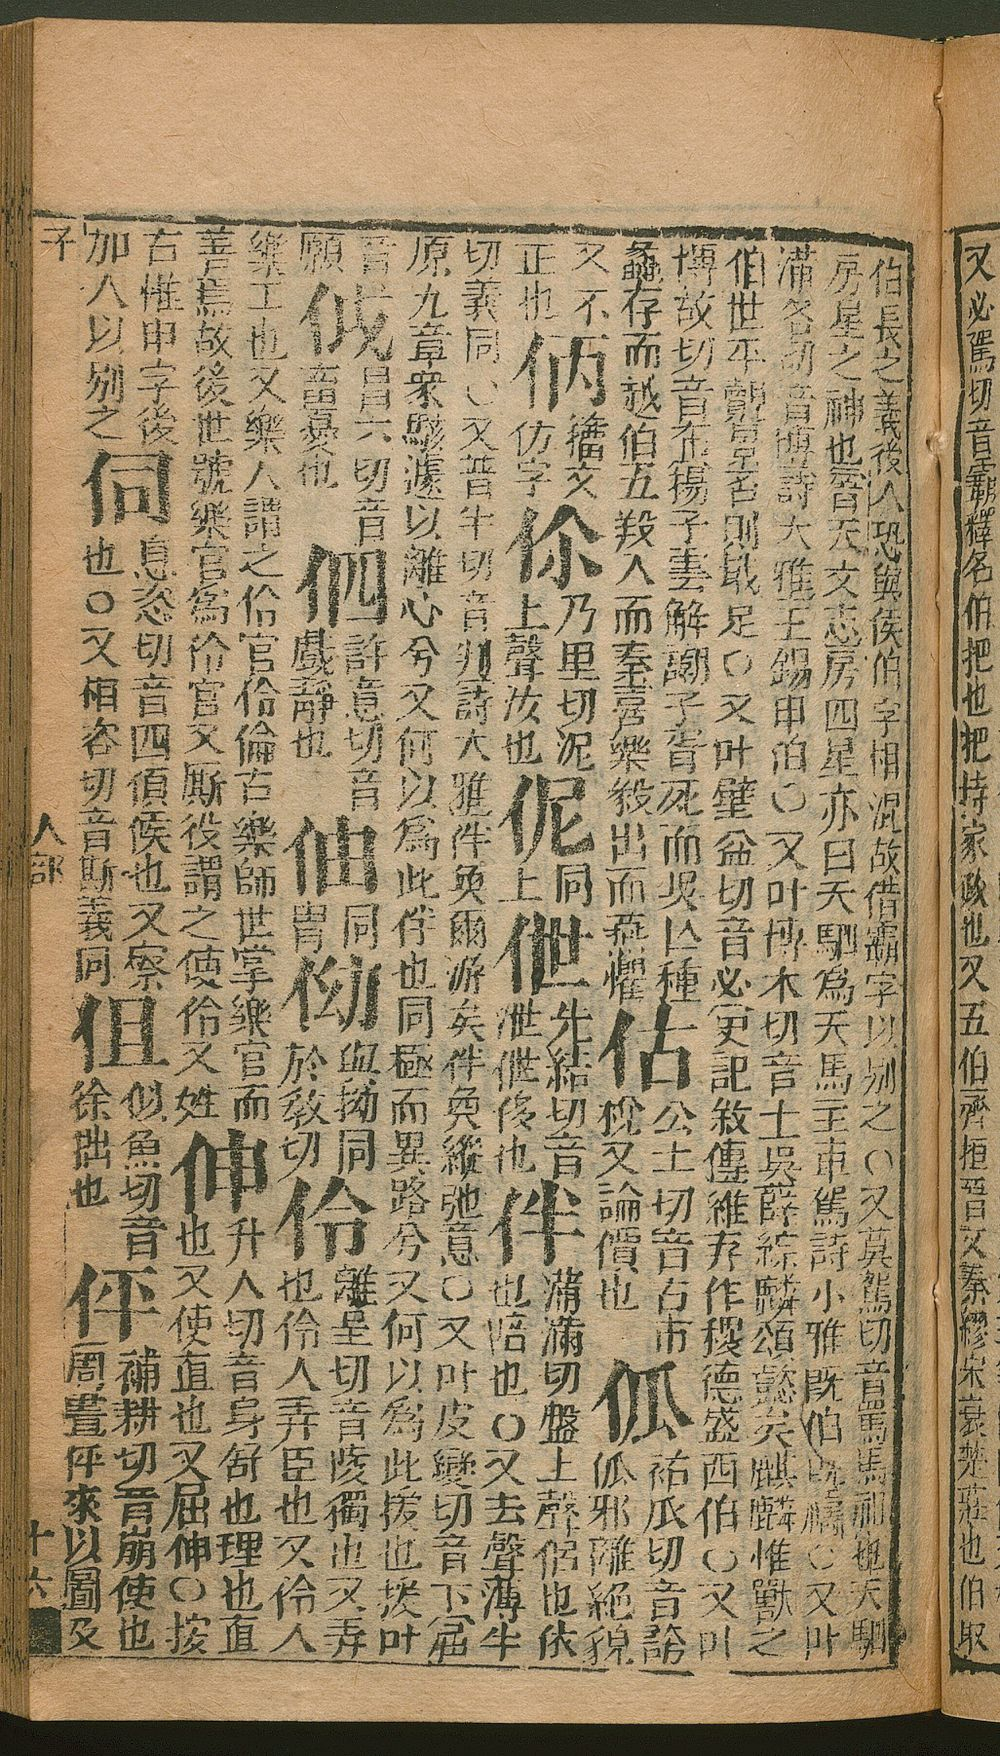 又必駕切音霸釋名伯把也把持家政也又五伯齊桓晉文秦繆宋襄楚莊也伯取
伯長之義後人恐與侯伯字相混故借霸字以别之〇又莫駕切音罵馬祖也天駟
房星之神也晉天文志房四星亦曰天駟爲天馬主車駕詩小雅既伯既禱〇又叶
滿各切音博詩大雅王錫申伯〇又叶博木切音士吳薛綜麟頌懿矣麒麟惟獸之
伯世平覿景否則戢足〇又叶璧益切音必更記敘傳維弃作稷德盛西伯〇又叶
博故切音布揚子雲解謝子胥死而吳亾種
蠡存而越伯五羖人而秦喜樂毅出而燕懼
估公土切音古市
稅又論價也
㑶祐瓜切音誇
㑶邪離絕貌
又不
正也
㑂籀文
仿字
伱乃里切泥
上聲汝也
伲同
上
伳先結切音
泄伳侈也
伴滿滿切盤上聲侣也依
也陪也〇又去聲薄半
切義同〇又普半切音判詩大雅伴奐爾游矣伴奐縱弛意〇又叶皮變切音下屈
原九章衆駭遽以離心兮又何以爲此伴也同極而異路兮又何以爲此援也援叶
音
願
㑁昌六切音
畜憂也
㑥許意切音
戲靜也
伷同
胄
㑃與拗同
於教切
伶離呈切音陵獨也又弄
也伶人弄臣也又伶人
樂工也又樂人謂之伶官伶倫古樂師世掌樂官而
善焉故後世號樂官爲伶官又厮役謂之使伶又姓
伸升人切音身舒也理也直
也又使直也又屈伸〇按
古惟申字後
加人以别之
伺息恣切音四偵候也又察
也〇又相咨切音斯義同
伹似魚切音
徐拙也
伻補耕切音崩使也
周書伻來以圖及
子
人部
十六